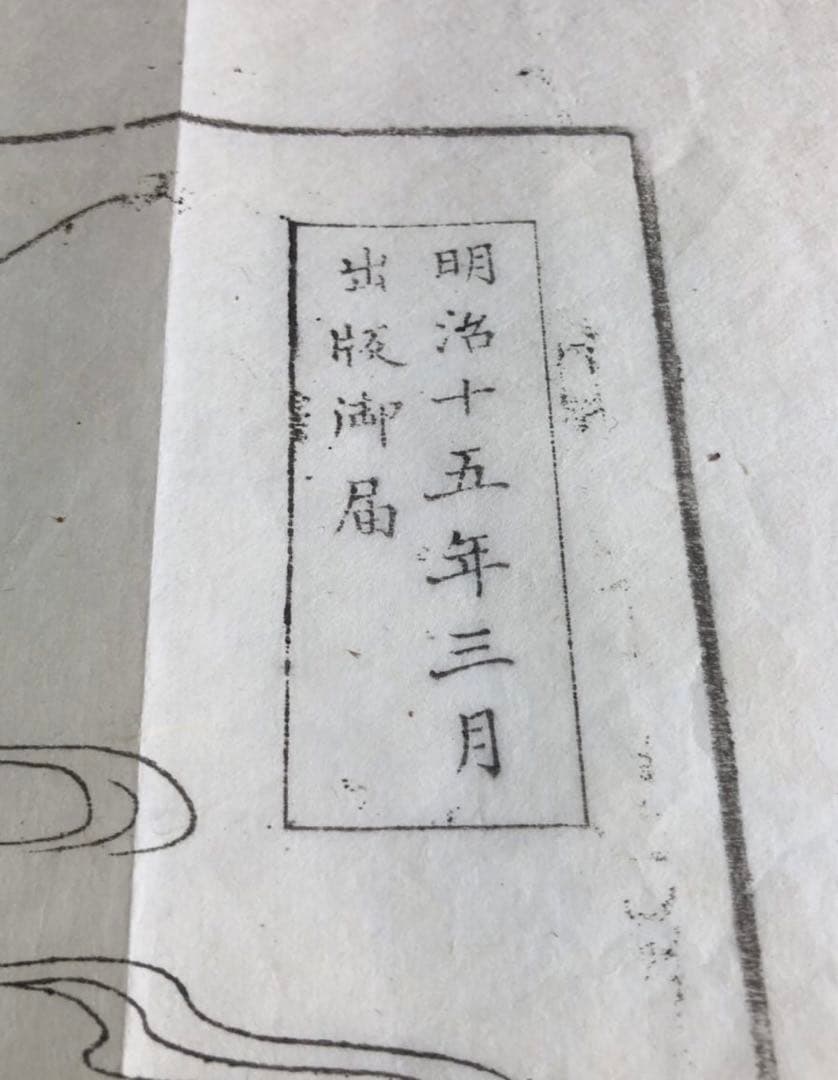 明治十五年三月
出版御届